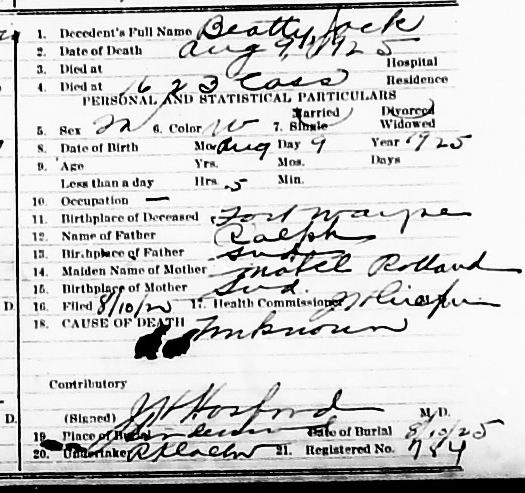 1. Decedent's Full Name Beatty Jack
2. Date of Death Aug 9, 1925
3. Died at Hospital
4. Died at 623 Cass Residence
PERSONAL AND STATISTICAL PARTICULARS
Married Divorced
5. Sex M 6. Color W 7. Single Widowed
8. Date of Birth Mo. Aug Day 9 Year 1925
9. Age Yrs. Mos. Days
Less than a day Hrs. 5 Min.
10. Occupation —
11. Birthplace of Deceased Fort Wayne
12. Name of Father Ralph
13. Birthplace of Father Ind.
14. Maiden Name of Mother Mabel Rolland
15. Birthplace of Mother Ind.
D. 16. Filed 8/10/25 17. Health Commissioner
18. CAUSE OF DEATH Unknown
Contributory
D. (Signed) Hosford M. D.
19. Place of Burial Date of Burial 8/10/25
20. Undertaker 21. Registered No. 784